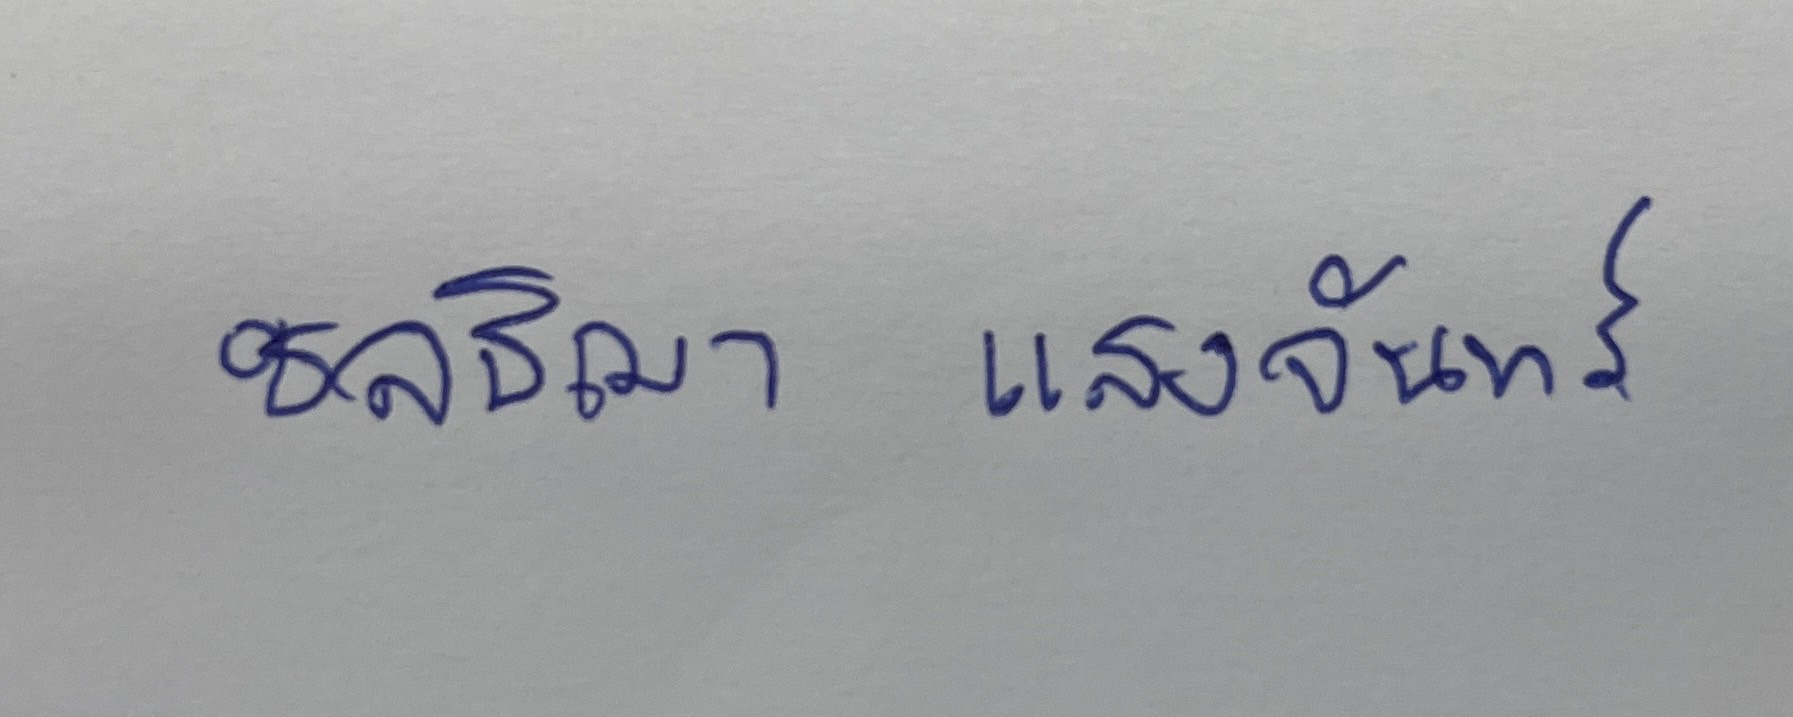 ชลธิฌา แสงจันทร์